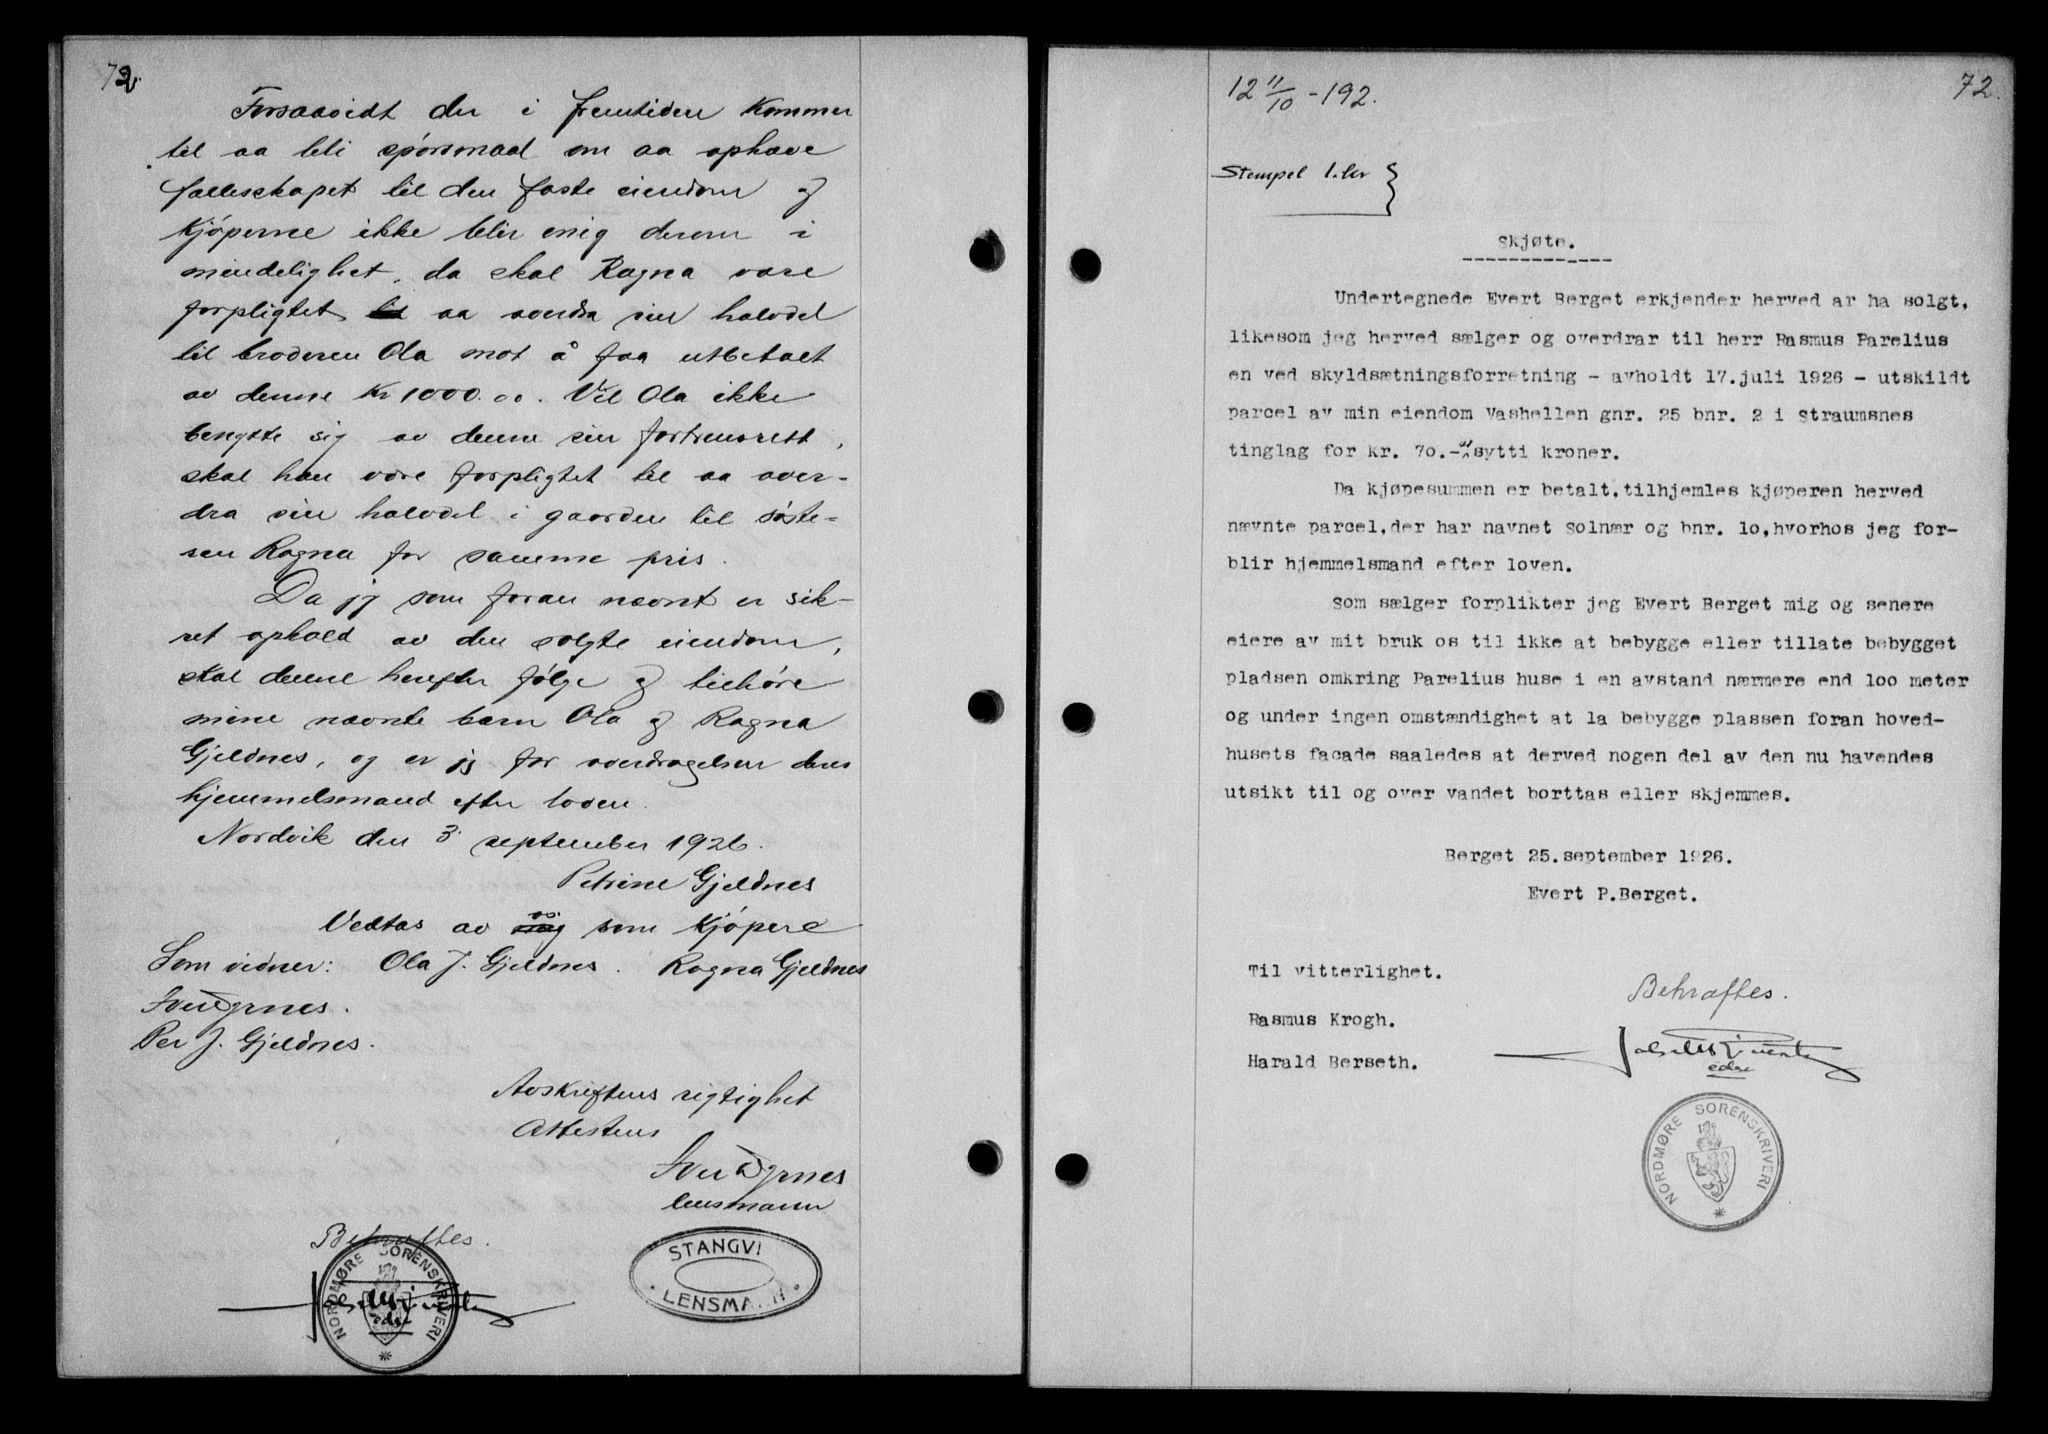 72
Forsaavidt der i fremtiden kommer
til aa bli spørsmaal om aa ophæve
fælleskapet til den faste eiendom og
kjøperne ikke blir enig derom i
mindelighet, da skal Ragna være
forpligtet til aa overdra sin halvdel
til broderen Ola mot å faa utbetalt
av denne Kr 1000.00. Vil Ola ikke
benytte sig av denne sin fortrinsrett,
skal han være forpligtet til aa over-
dra sin halvdel i gaarden til søste-
ren Ragna for samme pris.
Da jeg som foran nævnt er sik-
ret ophold av den solgte eiendom,
skal denne herefter følge og tilhøre
mine nævnte barn Ola og Ragna
Gjeldnes, og er jeg for overdragelsen deres
hjemmelsmand efter loven.
Nordvik den 3 september 1926.
Petrine Gjeldnes
Vedtas av mig os som kjøpere
Som vidner: Ola J. Gjeldnes. Ragna Gjeldnes
Per J. Gjeldnes.
Avskriftens rigtighet
Attesteres
lensmann
Bekræftes.
NORDMØRE SORENSKRIVERI
STANGVI
LENSMA
12 11/10 - 192.
72.
Stempel 1. kr
Skjøte.
Undertegnede Evert Berget erkjender herved ar ha solgt,
likesom jeg herved sælger og overdrar til herr Rasmus Parelius
en ved skyldsætningsforretning - avholdt 17. juli 1926 - utskildt
parcel av min eiendom Vashellen gnr. 25 bnr. 2 i Straumsnes
tinglag for kr. 70.- sytti kroner.
Da kjøpesummen er betalt, tilhjemles kjøperen herved
nævnte parcel, der har navnet Solnær og bnr. 1o, hvorhos jeg for-
blir hjemmelsmand efter loven.
Som sælger forplikter jeg Evert Berget mig og senere
eiere av mit bruk os til ikke at bebygge eller tillate bebygget
pladsen omkring Parelius huse i en avstand nærmere end 1oo meter
og under ingen omstændighet at la bebygge plassen foran hoved-
husets facade saaledes at derved nogen del av den nu havendes
utsikt til og over vandet borttas eller skjemmes.
Berget 25. september 1926.
Evert P. Berget.
Til vitterlighet.
Rasmus Krogh.
Harald Berseth.
Bekræftes.
NORDMØRE SORENSKRIVERI